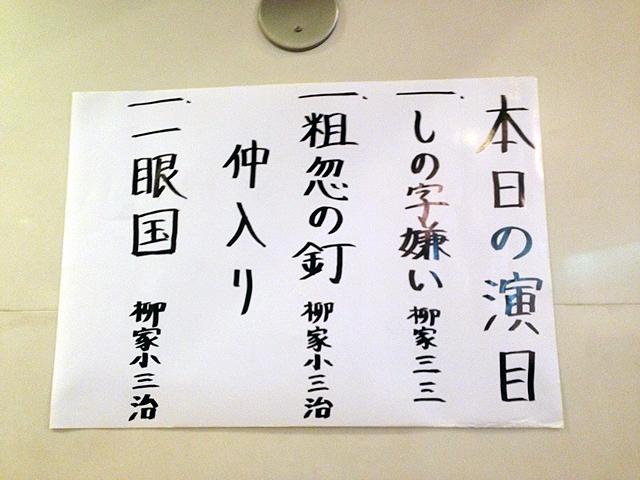 本日の演目
一、しの字嫌い 柳家三三
一、粗忽の釘 柳家小三治
仲入り
一、一眼国 柳家小三治